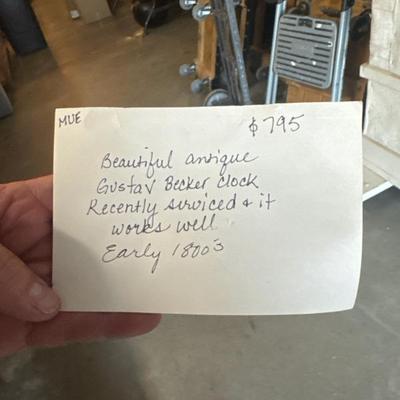 MUE
$795
Beautiful antique
Gustav Becker clock
Recently serviced & it
works well
Early 1800s